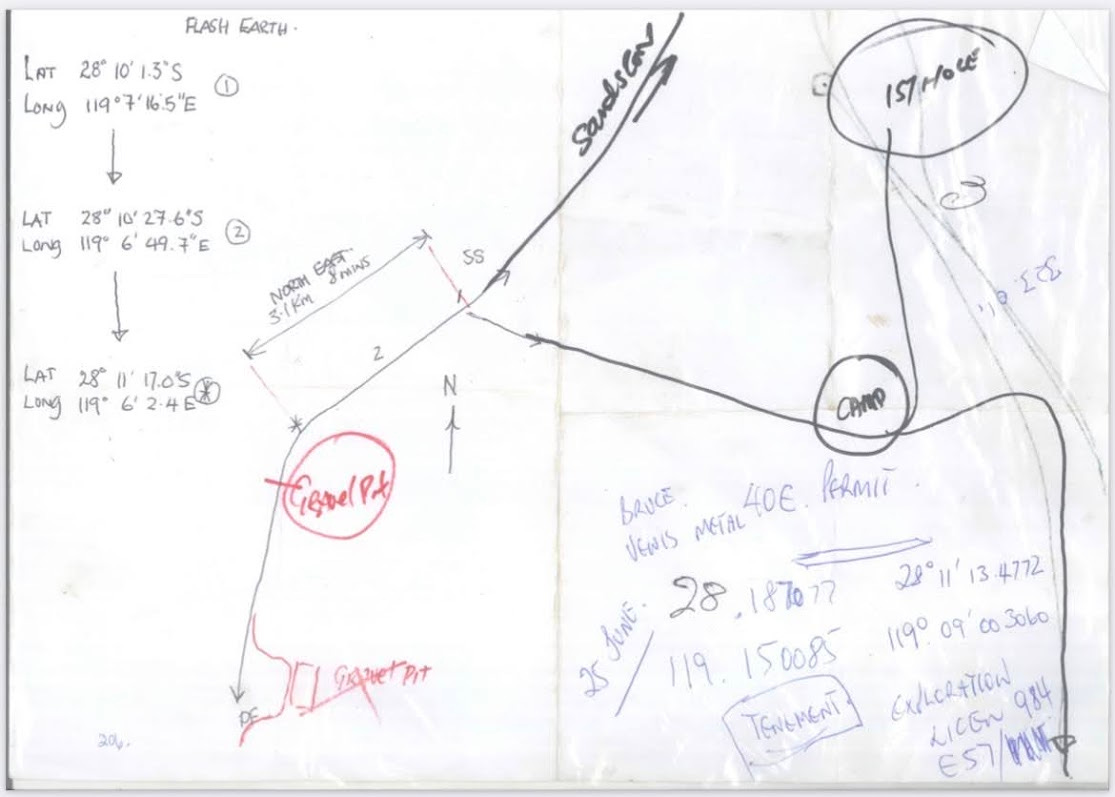 FLASH EARTH.
LAT 28° 10' 1.3"S
LONG 119° 7' 16.5"E
1
LAT 28° 10' 27.6"S
LONG 119° 6' 49.7"E
2
LAT 28° 11' 17.0"S
LONG 119° 6' 2.4 E
*
NORTH EAST
3.1 KM 8 MINS
SS
1
2
*
N
Gravel Pit
Gravel Pit
206.
1ST HOLE
CAMP
BRUCE. 40E. PERMIT.
VENUS METAL
25 JUNE.
28.187077
28° 11' 13.4772
119. 150085
119° 09' 00 3060
TENEMENT.
EXPLORATION
LICEN 984
E57/